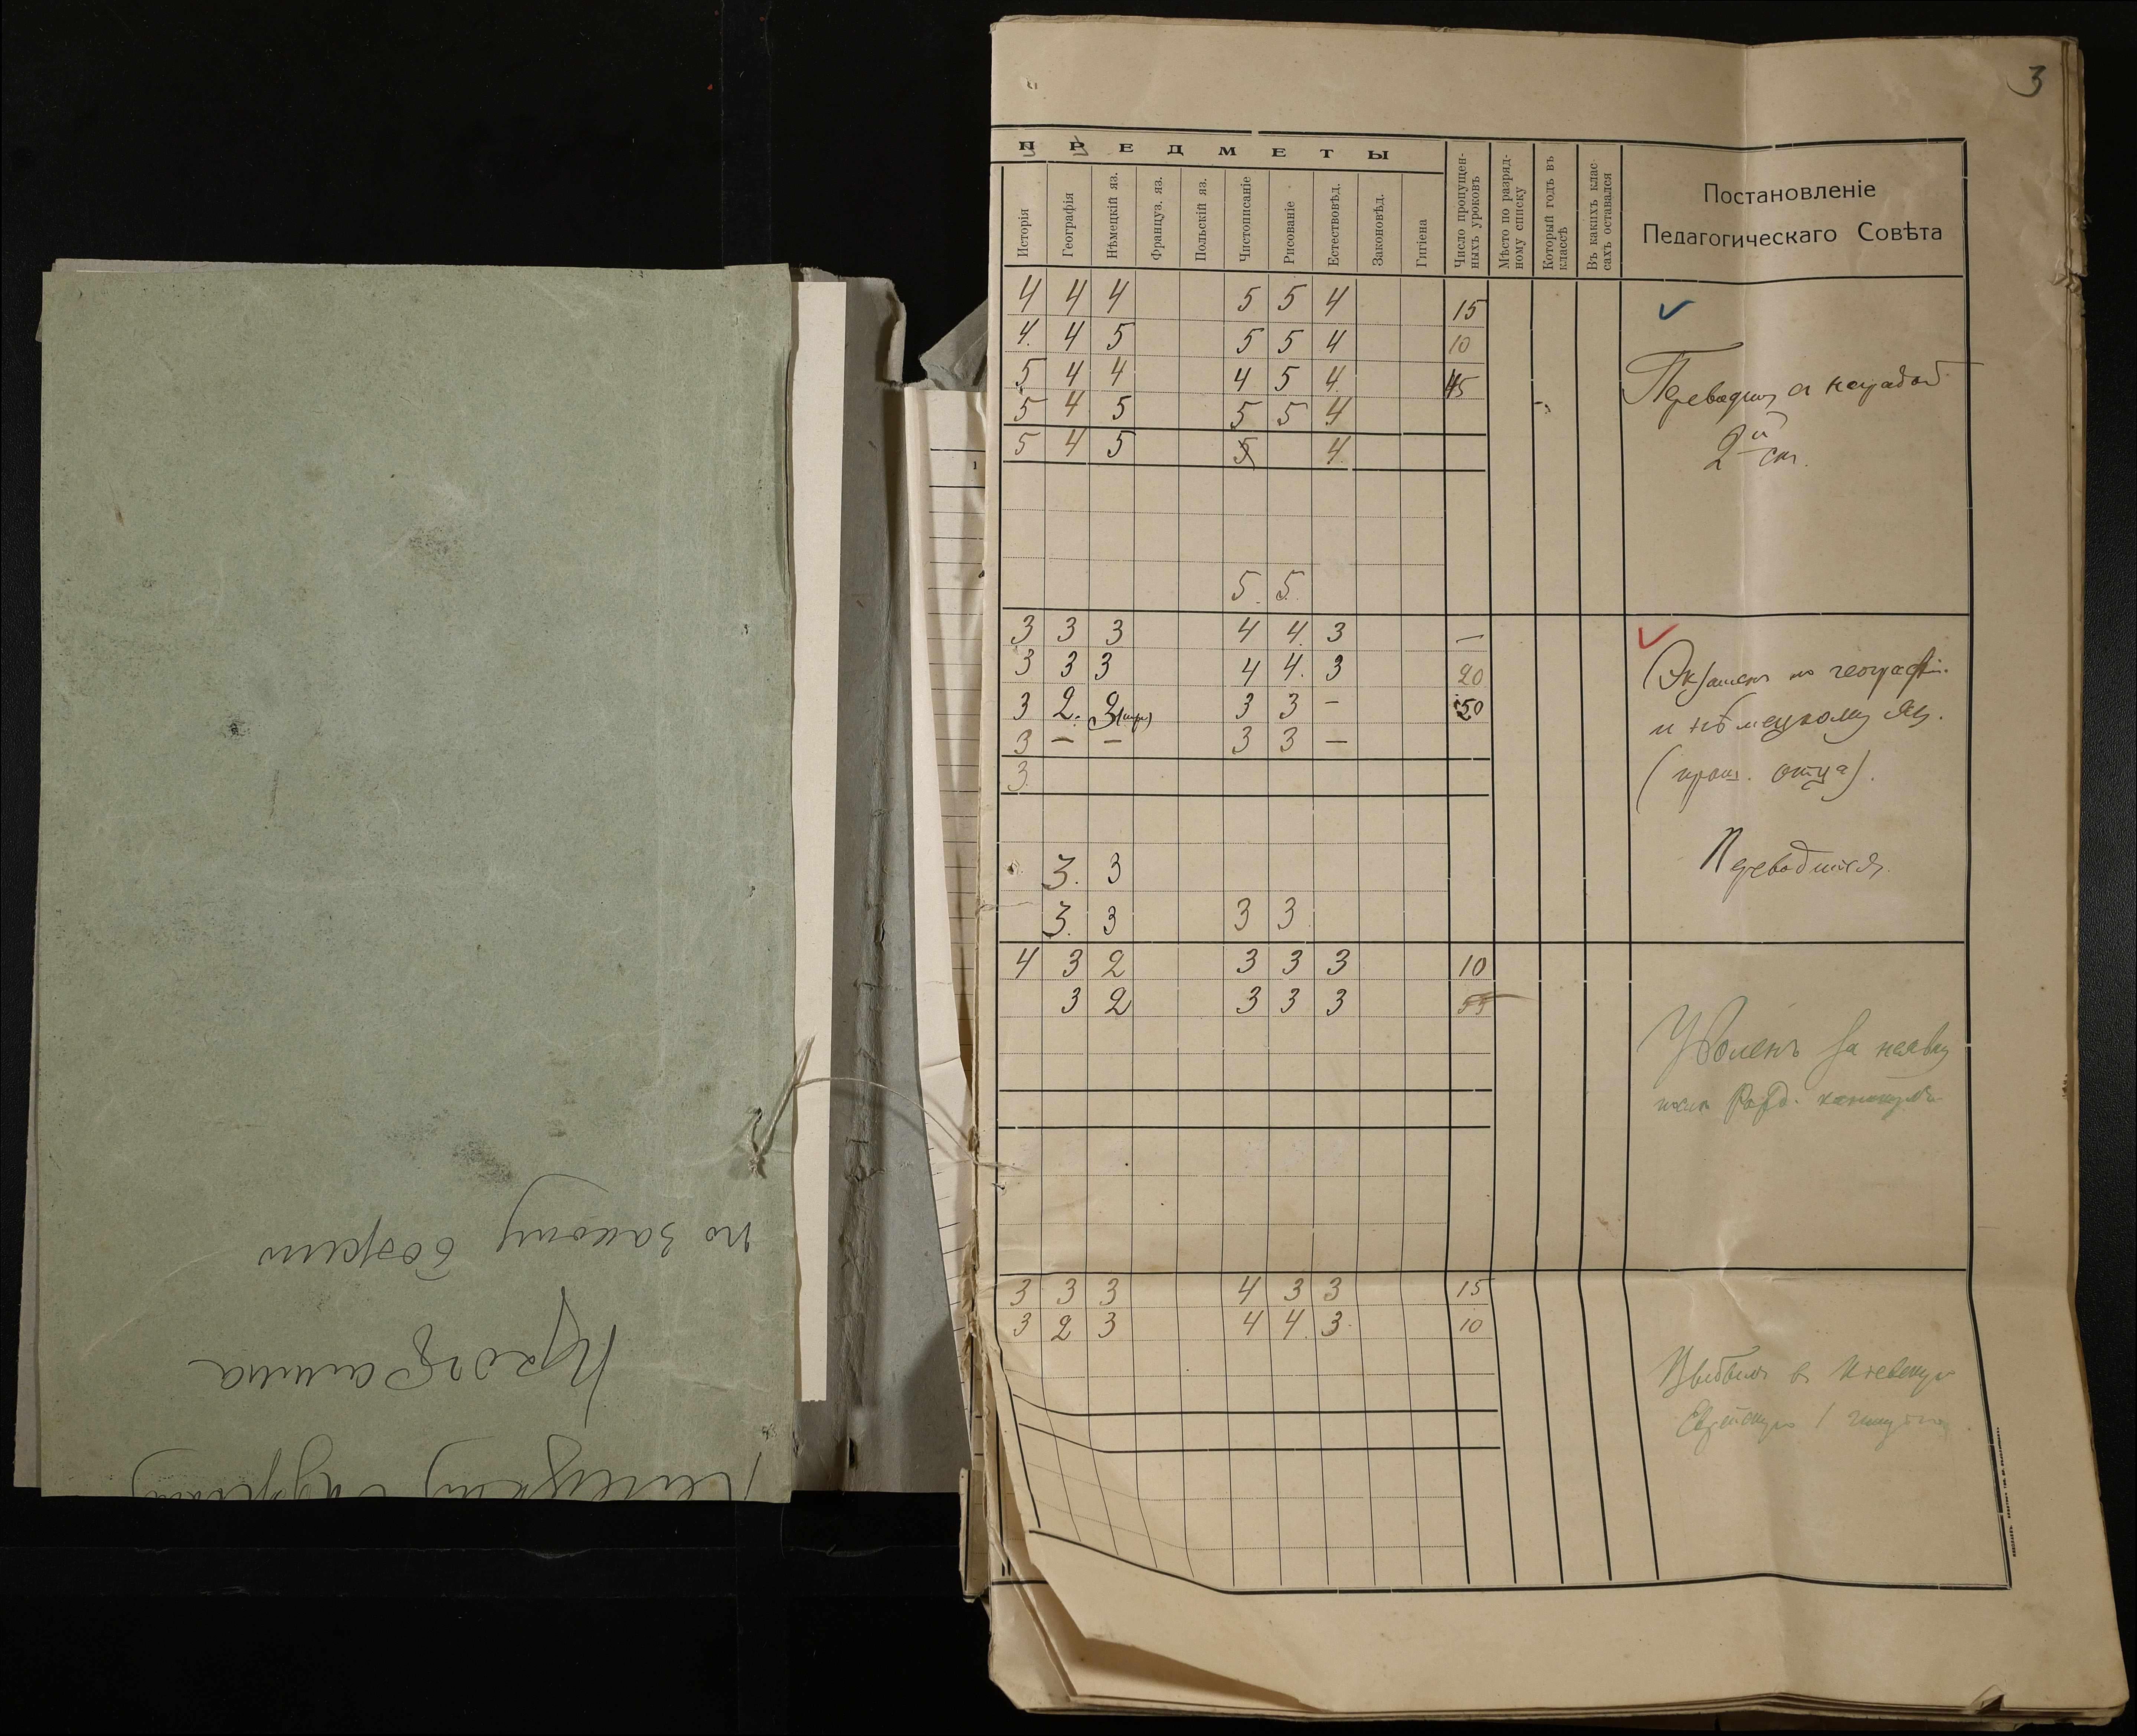 3
ПРЕДМЕТЫ
Исторія
Географія
Нѣмецкій яз.
Француз. яз.
Польскій яз.
Чистописаніе
Рисованіе
Естествовѣд.
Законовѣд.
Гигіена
Число пропущен-
ныхъ уроковъ
Мѣсто по разряд-
ному списку
Который годъ въ
классѣ
Въ какихъ клас-
сахъ оставался
Постановленіе
Педагогическаго Совѣта
4 4 4 5 5 4 15
4. 4 5 5 5 4 10
5 4 4 4 5 4. 45
5 4 5 5 5 4
5 4 5 5 4.
5. 5.
Переводится съ наградой
2й ст.
3 3 3 4 4. 3 —
3 3 3 4 4. 3 20
3 2. 3 3 3 - 50
3 — — 3 3 —
3.
3. 3
3. 3 3 3
Экзаменъ по географіи
и нѣмецкому яз.
(прош. отца).
Переводится.
4 3 2 3 3 3 10
3 2 3 3 3 55
Уволенъ за неявку
послѣ Рожд. каникулъ
3 3 3 4 3 3 15
3 2 3 4 4. 3. 10
Выбылъ въ Кіевскую
Еврейскую 1 гимназію
Программа
по закону божію